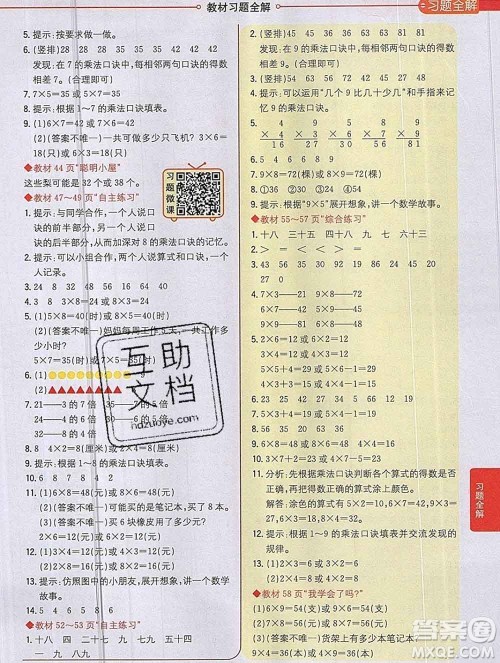 教材习题全解
习题全解
5. 提示：按要求做一做。
6. (竖排) 28 35 42 49 56 63
发现：在 7 的乘法口诀中，每相邻两句口诀的得数
相差 7。(合理即可)
7. 7×5=35 或 5×7=35
8. 提示：根据 1～7 的乘法口诀填表。
9. (1) 6×7=42 或 7×6=42
(2) (答案不唯一) 一共可做多少只飞机？ 3×6=
18 或 6×3=18(只)
◆教材 44 页“聪明小屋”
这些梨可能是 32 个或 38 个。
◆教材 47~49 页“自主练习”
习题微课
1. 提示：与同学合作，一个人说口
诀的前半部分，另一个人说口诀的
后半部分，从而加深对 8 的乘法口诀的记忆。
2. 提示：可以小组合作，两个人说算式和口诀，一
个人评价。
3. 14 24 48 28 32 64
4. 8×5=40(本) 或 5×8=40(本)
5. (1) 8×5=40(时) 或 5×8=40(时)
(2) (答案不唯一) 妈妈每周工作 5 天，一共工作多
少小时？
5×7=35(时) 或 7×5=35(时)
6. (1)
(2)
7. 21 —— 3 的 7 倍 35 —— 7 的 5 倍
24 —— 8 的 3 倍 18 —— 3 的 6 倍
8. 4×2=8(厘米) 或 2×4=8(厘米)
9. 提示：根据 1～8 的乘法口诀填表。
10. (1) 8×8=64(元)
11. (1) 6×8=48(元) 或 8×6=48(元)
(2) (答案不唯一) 可能买的是笔记本，买了 8 本。
12. (1) 8×2=16(元) 或 2×8=16(元)
(2) (答案不唯一) 买 6 块橡皮用了多少元？
2×6=12(元) 或 6×2=12(元)
13. 提示：仿照图中的小朋友，展开想象，讲一个数学
故事。
14. 5 4 6 5 8 6 8
◆教材 52~53 页“自主练习”
1. 十八 四 二十七 九 九 五 五十四
一 九 八九
2. (竖排) 45 45 54 63 63 72 81
发现：在 9 的乘法口诀中，每相邻两句口诀的得数
相差 9。(合理即可)
3. 27 54 81 45 36 63
4. 提示：可以运用“几个 9 比几十少几”和手指来记
忆 9 的乘法口诀。
6. 8×9=72(棵) 或 9×8=72(棵)
7. ①36 ②90 ③54 ④24
8. 提示：根据“9×5”展开想象，讲一个数学故事。
◆教材 55~57 页“综合练习”
1. 十八 三十五 四十八 九 七 六十三
3. 72 30 12 63 24 8 36 27
4. 7×3——3×7 9×8——8×9
6×7——7×6 4×5——5×4
9×6——6×9
5. 7×6=42(元) 或 6×7=42(元)
6. 9×2=18(人) 或 2×9=18(人)
7. 8×4=32 或 4×8=32
8. 9×3=27 或 3×9=27
9. 4×8=32(厘米) 或 8×4=32(厘米)
10. 3×7+2=23 或 4×5+3=23
11. 分析：先根据乘法口诀判断各个算式的得数是否正
确，再给得数正确的算式涂上颜色。
解答：给 2×9=18，7×8=56，8×6=48，
4×5=20，6×3=18 的算式涂颜色。
12. 提示：根据 1～9 的乘法口诀填表并交流发现的
规律。
13. (1) 2×3=6 或 3×2=6
(2) 3×4=12 或 4×3=12
(3) 4×6=24 或 6×4=24
◆教材 58 页“我学会了吗？”
1. (1) 6×9=54(支) 或 9×6=54(支)
(2) 9×5=45(支) 或 5×9=45(支)
(3) (答案不唯一) 货架上有多少本笔记本？
9×3=27(本) 或 3×9=27(本)
习题全解
互助文档
hdzuoye.com
答案圈
MXQE.COM